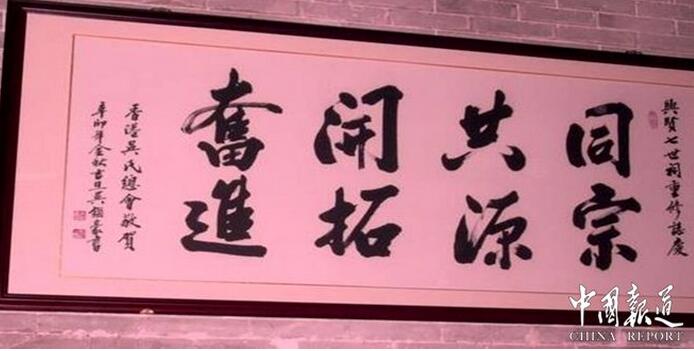 興賢七世祠重修誌慶
同宗
共源
開拓
奮進
香港吳氏總會敬賀
辛卯年金秋吉旦吳錦豪書
中國報道
CHINA REPORT